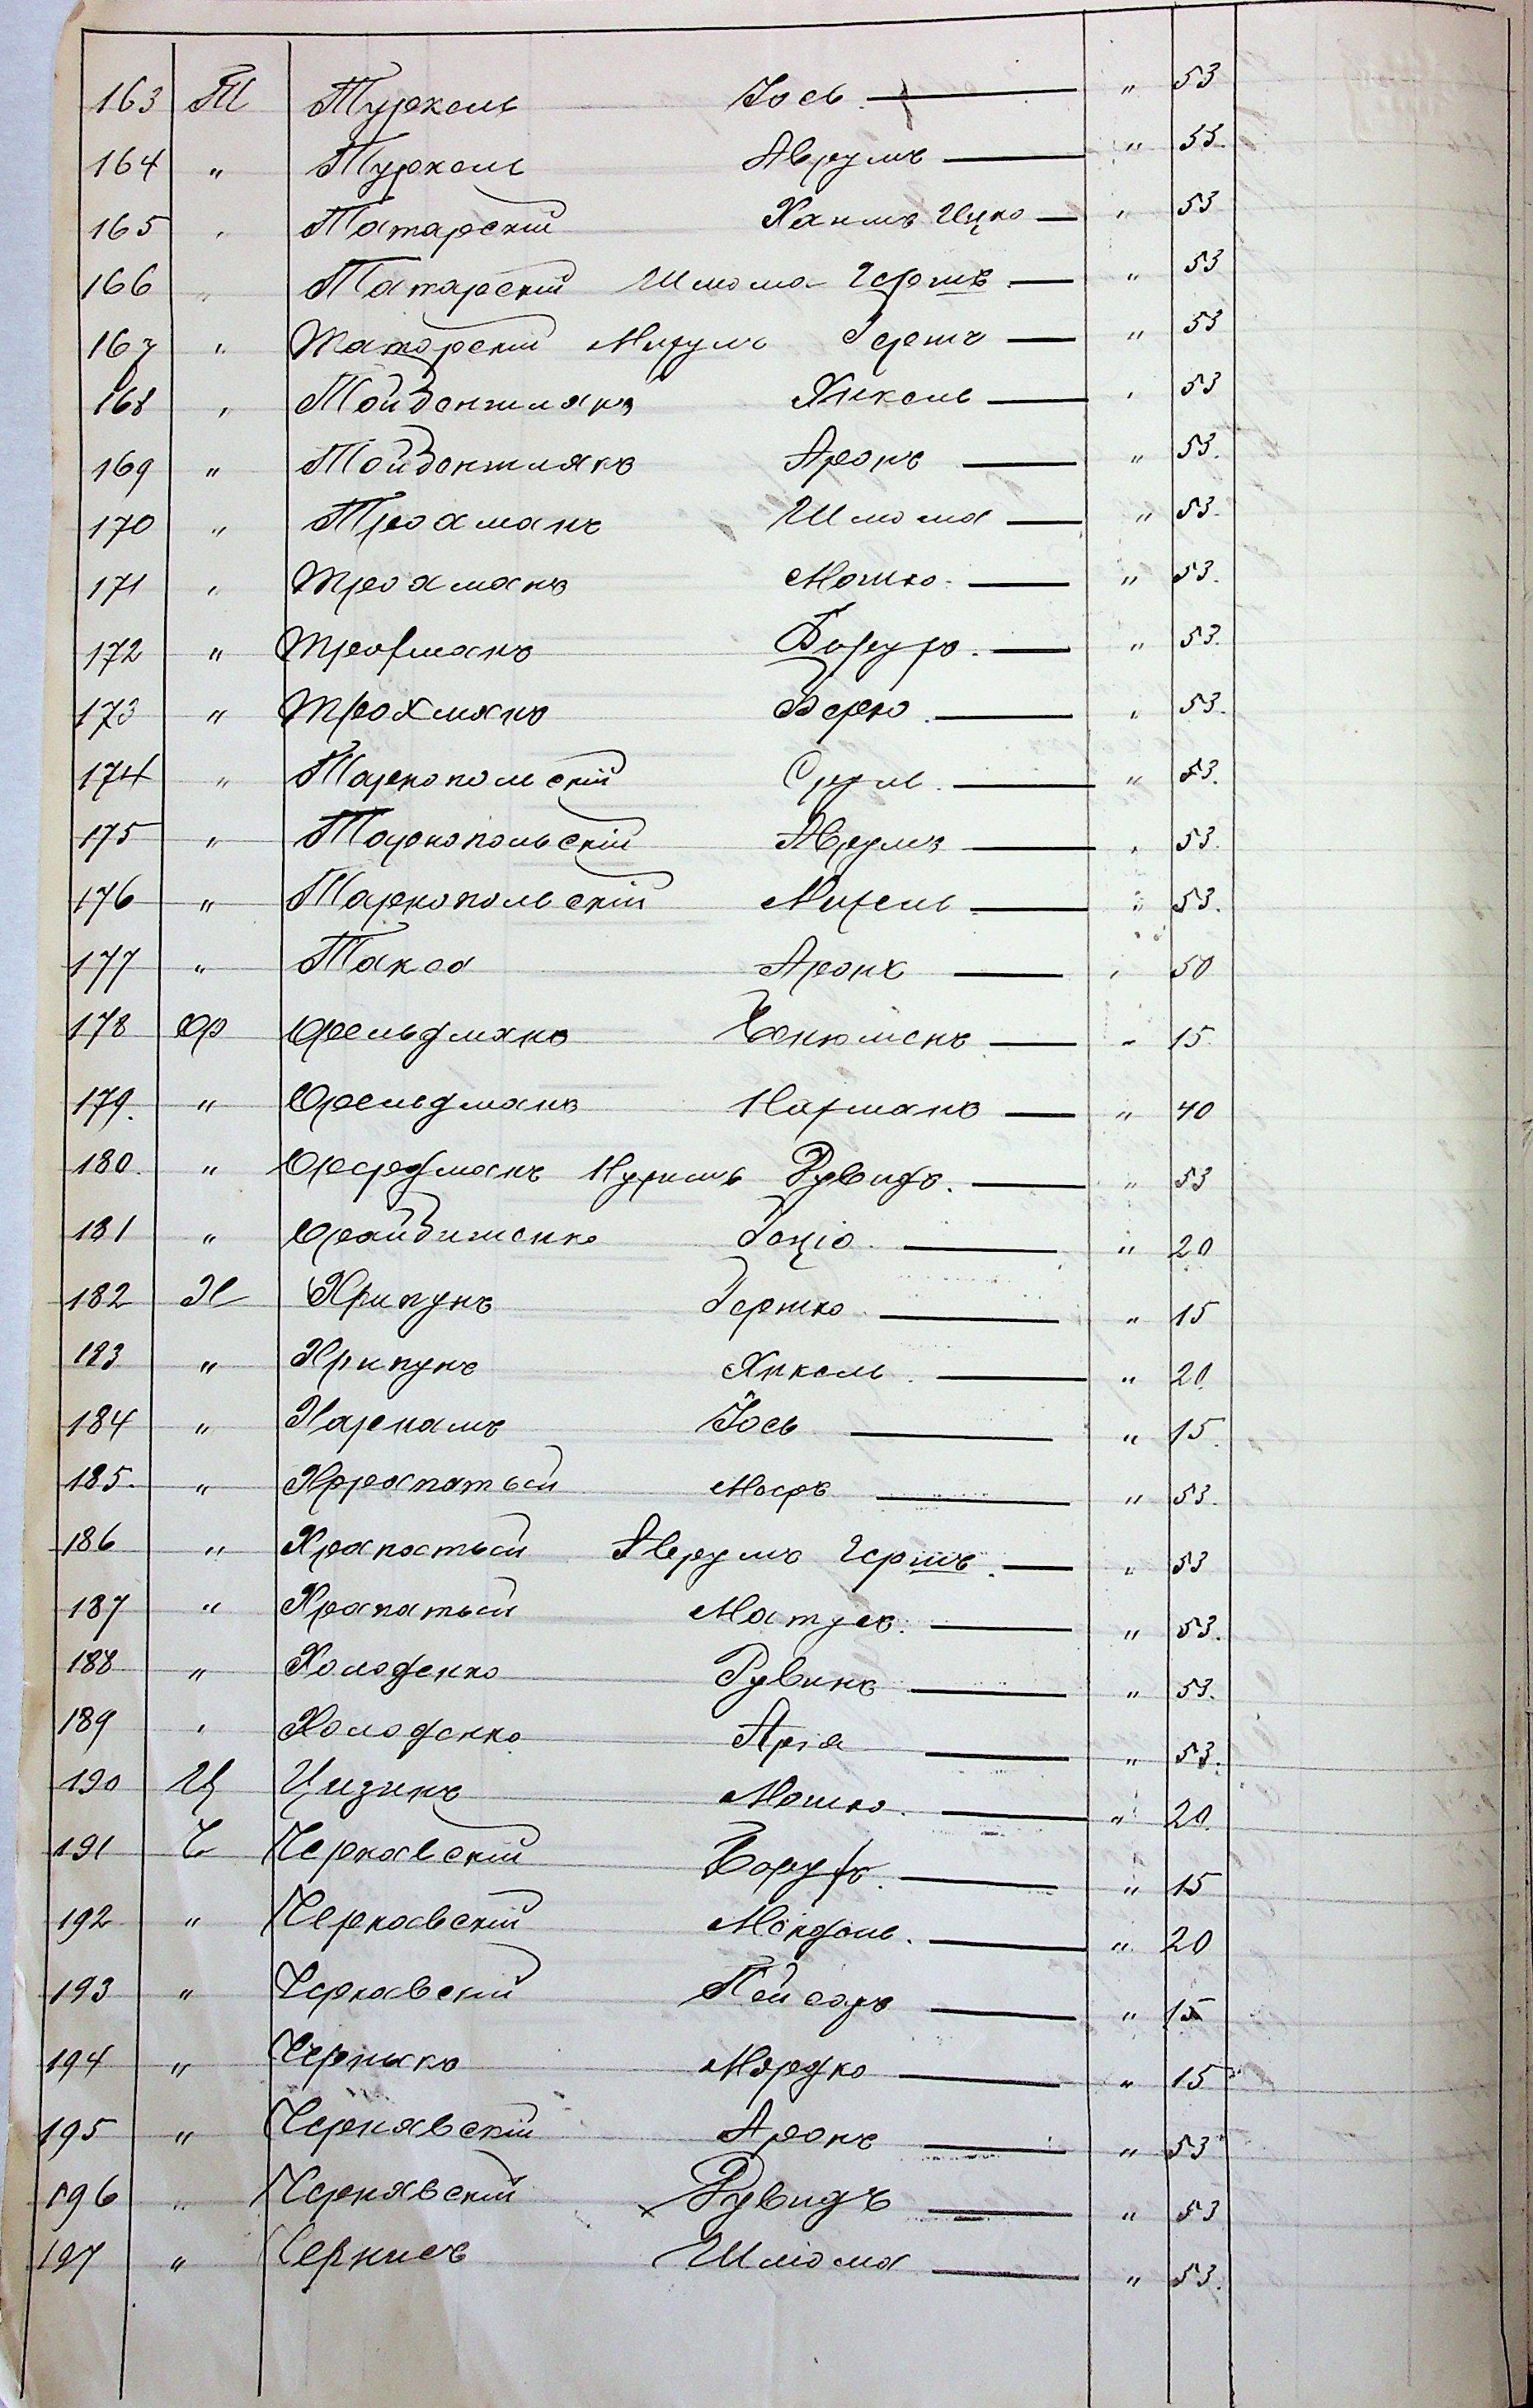 163 Т Туркель Іось — " 53
164 " Туркель Аврумъ — " 53.
165 " Татарскій Хаимъ Ицко — " 53
166 " Татарскій Шлома Гершъ — " 53
167 " Татарскій Михуль Гершъ — " 53
168 " Тойбентлякъ Янкель — " 53
169 " Тойбентлякъ Аронъ — " 53.
170 " Трахманъ Шлома — " 53.
171 " Трахманъ Мошко. — " 53.
172 " Трахманъ Борухъ. — " 53.
173 " Трахманъ Берко. — " 53.
174 " Тарнопольскій Сруль. — " 53.
175 " Тарнопольскій Аврумъ — " 53.
176 " Тарнопольскій Михель — " 53.
177 " Такса Аронъ — " 50
178 Ф Фельдманъ Беньюменъ — " 15
179. " Фельдманъ Нахманъ — " 40
180. " Фердманъ Нухимъ Дувидъ. — " 53
181 " Файбишенко Гоціо. — " 20
182 Х Хрипунъ Гершко. — " 15
183 " Хрипунъ Янкель. — " 20.
184 " Харнамъ Іось — " 15.
185. " Храпатый Мееръ — " 53.
186 " Храпатый Аврумъ Гершъ. — " 53
187 " Храпатый Матусъ. — " 53.
188 " Холоденко Рувинъ — " 53.
189 " Холоденко Аріа — " 53.
190 Ц Цизинъ Мошко. — " 20.
191 Ч Чернавскій Борухъ. — " 15
192 " Чернавскій Мендель. — " 20
193 " Чернавскій Пейсахъ — " 15
194 " Черныко Мордко — " 15
195 " Чернявскій Аронъ — " 53
196 " Чернявскій Дувидъ — " 53
197 " Чернисъ Шліома — " 53.